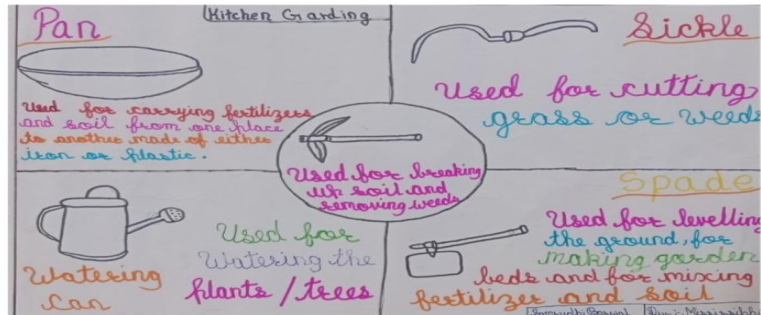 Kitchen Garding
Pan
Used for carrying fertilizers
and soil from one place
to another made of either
iron or plastic.
Sickle
Used for cutting
grass or weeds
Used for breaking
up soil and
removing weeds
Watering
Can
Used for
Watering the
plants/trees
Spade
Used for levelling
the ground, for
making garden
beds and for mixing
fertilizer and soil